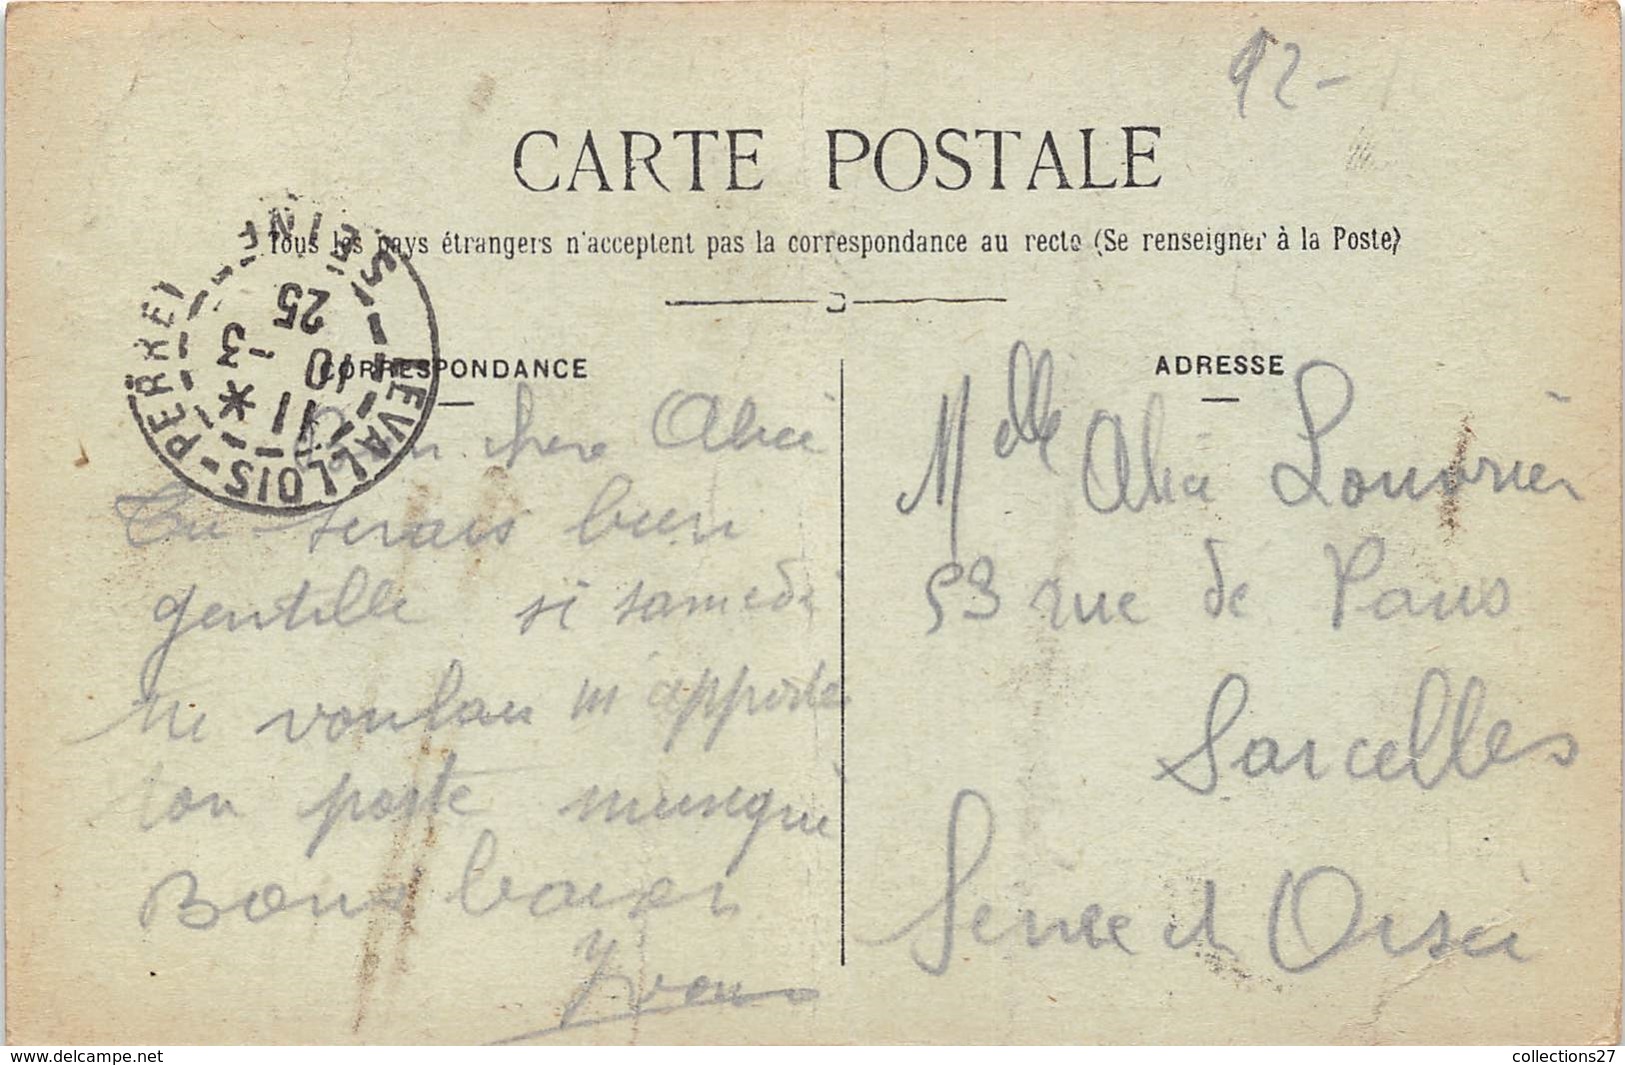 92-
CARTE POSTALE
Tous les pays étrangers n'acceptent pas la correspondance au recto (Se renseigner à la Poste)
LEVALLOIS-PERRET SEINE
11 10
* 3 25
CORRESPONDANCE
chere Alice
Tu serais bien
gentille si samedi
m'apporte
ton poste musique
Bons baisers
Yvonne
ADRESSE
Melle Alice Louvrier
53 rue de Paris
Sarcelles
Seine et Oise
www.delcampe.net
collections27